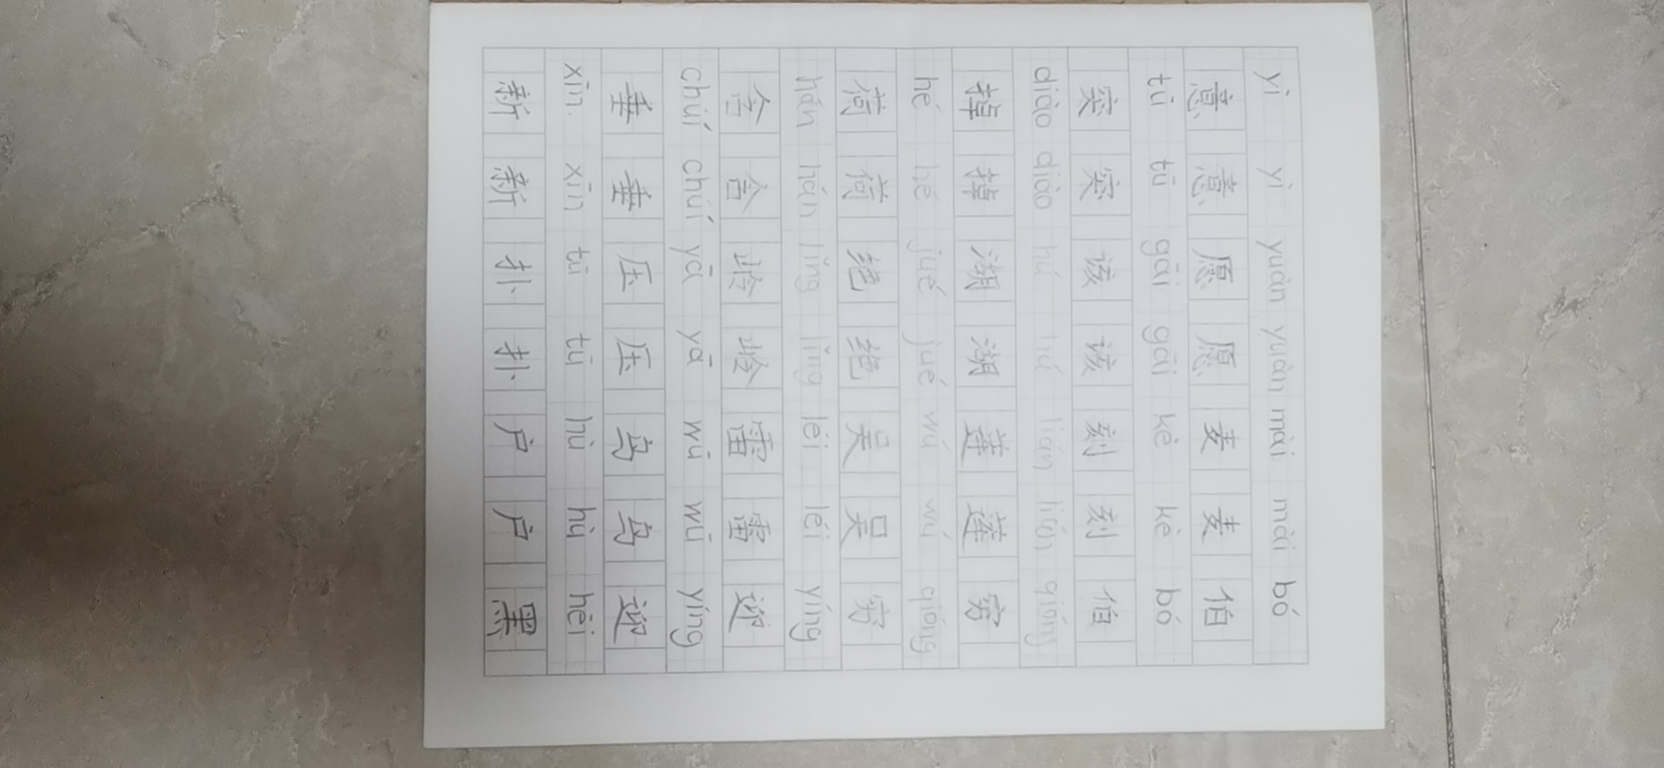 yì yì yuàn yuàn mài mài bó
意 意 愿 愿 麦 麦 伯
tū tū gāi gāi kè kè bó
突 突 该 该 刻 刻 伯
diào diào hú hú lián lián qióng
掉 掉 湖 湖 莲 莲 穷
hé hé jué jué wú wú qióng
荷 荷 绝 绝 吴 吴 穷
hán hán lǐng lǐng léi léi yíng
含 含 岭 岭 雷 雷 迎
chuí chuí yā yā wū wū yíng
垂 垂 压 压 乌 乌 迎
xīn xīn tū tū hù hù hēi
新 新 扑 扑 户 户 黑